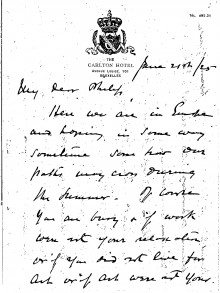 THE
CARLTON HOTEL
AVENUE LOUISE, 101
BRUXELLES
June 29th /25
My dear Philip,
Here we are in Europe
and hoping in some way
sometime some how our
paths may cross during
the summer. Of course
you are busy & if work
were not your relaxation
or if you did not live for
Art or if art were not your